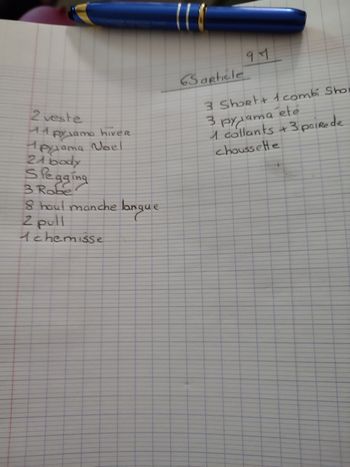 9 M
65 article
2 veste
11 pyjama hiver
1 pyjama Noel
21 body
5 legging
3 Robe
8 haul manche langue
2 pull
1 chemisse
3 Short + 1 combi Shor
3 pyjama été
1 collants + 3 paire de
choussette